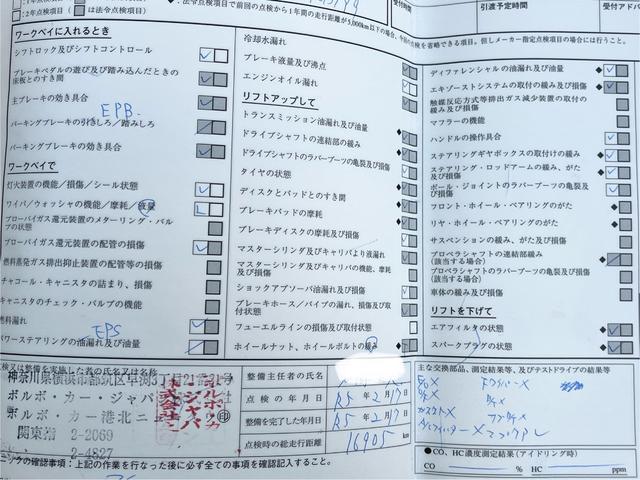 □:2年点検項目(■は法令点検項目)
◆:点検項目で前回の点検から1年間の走行距離が5,000km以下の場合、今回の点検を省略できる項目。但しメーカー指定点検項目の場合には行うこと。
引渡予定時間
受付アドバ
ワークベイに入れるとき
シフトロック及びシフトコントロール
ブレーキペダルの遊び及び踏み込んだときの
床板とのすき間
主ブレーキの効き具合
EPB
パーキングブレーキの引きしろ/踏みしろ
パーキングブレーキの効き具合
ワークベイで
灯火装置の機能/損傷/シール状態
ワイパ/ウォッシャの機能/摩耗/液量
ブローバイガス還元装置のメターリング・バルブ
の状態
ブローバイガス還元装置の配管の損傷
燃料蒸発ガス排出抑止装置の配管等の損傷
チャコール・キャニスタの詰まり、損傷
キャニスタのチェック・バルブの機能
燃料漏れ
EPS
パワーステアリングの油漏れ及び油量
冷却水漏れ
ブレーキ液量及び汚れ
エンジンオイル漏れ
リフトアップして
トランスミッション油漏れ及び油量
ドライブシャフトの連結部の緩み
ドライブシャフトのラバーブーツの亀裂及び損傷
タイヤの状態
ディスクとパッドとのすき間
ブレーキパッドの摩耗
ブレーキディスクの摩耗及び損傷
マスターシリンダ及びキャリパより液漏れ
マスターシリンダ及びキャリパの機能、摩耗
及び損傷
ショックアブソーバ油漏れ及び損傷
ブレーキホース/パイプの漏れ、損傷及び取
付状態
フューエルラインの損傷及び取付状態
ホイールナット、ホイールボルトの緩み
ディファレンシャルの油漏れ及び油量
エキゾーストシステムの取付の緩み及び損傷
触媒反応方式等排出ガス減少装置の取付の
緩み及び損傷
マフラーの機能
ハンドルの操作具合
ステアリングギヤボックスの取付けの緩み
ステアリング・ロッドアームの緩み、がた
及び損傷
ボール・ジョイントのラバーブーツの亀裂及び
損傷
フロント・ホイール・ベアリングのがた
リヤ・ホイール・ベアリングのがた
サスペンションの緩み、がた及び損傷
プロペラシャフトの連結部緩み
(該当する場合)
プロペラシャフトのラバーブーツの亀裂及び損傷
(該当する場合)
車体の緩み及び損傷
リフトを下げて
エアフィルタの状態
スパークプラグの状態
点検又は整備を実施した者の氏名又は名称
神奈川県横浜市都筑区早渕3丁目21番31号
ボルボ・カー・ジャパン
ボルボ・カー港北ニュ
関東指 2-2069
2-4827
整備主任者の氏名
点検の年月日 R5年2月17日
整備を完了した年月日 R5年2月17日
点検時の総走行距離 16905 km
主な交換部品、測定結果等、及びテストドライブの結果等
●CO、HC濃度測定結果(アイドリング時)
CO % HC ppm
ニックの確認事項:上記の作業を行なった後に必ず全ての事項を確認すること。